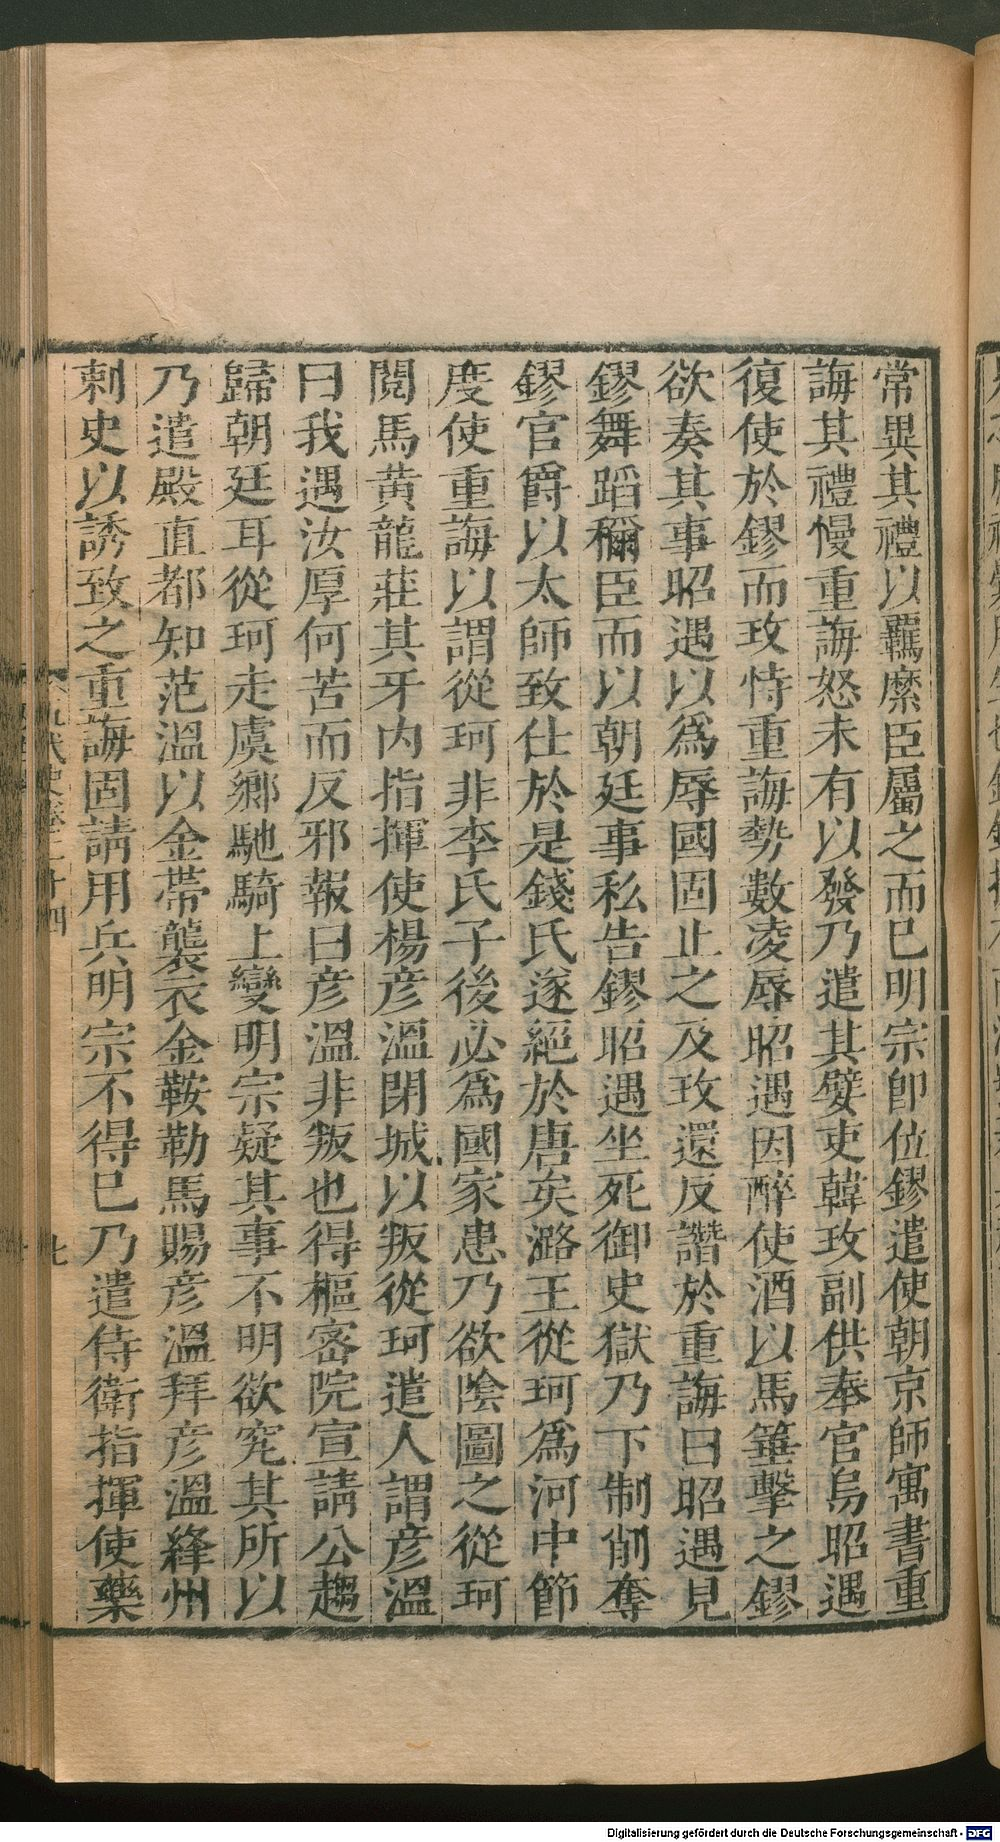 常異其禮以羈縻臣屬之而已明宗卽位鏐遣使朝京師寓書重
誨其禮慢重誨怒未有以發乃遣其嬖吏韓玫副供奉官烏昭遇
復使於鏐而玫恃重誨勢數凌辱昭遇因醉使酒以馬箠擊之鏐
欲奏其事昭遇以爲辱國固止之及玫還反譖於重誨曰昭遇見
鏐舞蹈稱臣而以朝廷事私告鏐昭遇坐死御史獄乃下制削奪
鏐官爵以太師致仕於是錢氏遂絕於唐矣潞王從珂爲河中節
度使重誨以謂從珂非李氏子後必爲國家患乃欲陰圖之從珂
閱馬黃龍莊其牙內指揮使楊彥溫閉城以叛從珂遣人謂彥溫
曰我遇汝厚何苦而反邪報曰彥溫非叛也得樞密院宣請公趨
歸朝廷耳從珂走虞鄉馳騎上變明宗疑其事不明欲究其所以
乃遣殿直都知范溫以金帶襲衣金鞍勒馬賜彥溫拜彥溫絳州
刺史以誘致之重誨固請用兵明宗不得已乃遣侍衛指揮使藥
七
Digitalisierung gefördert durch die Deutsche Forschungsgemeinschaft - DFG